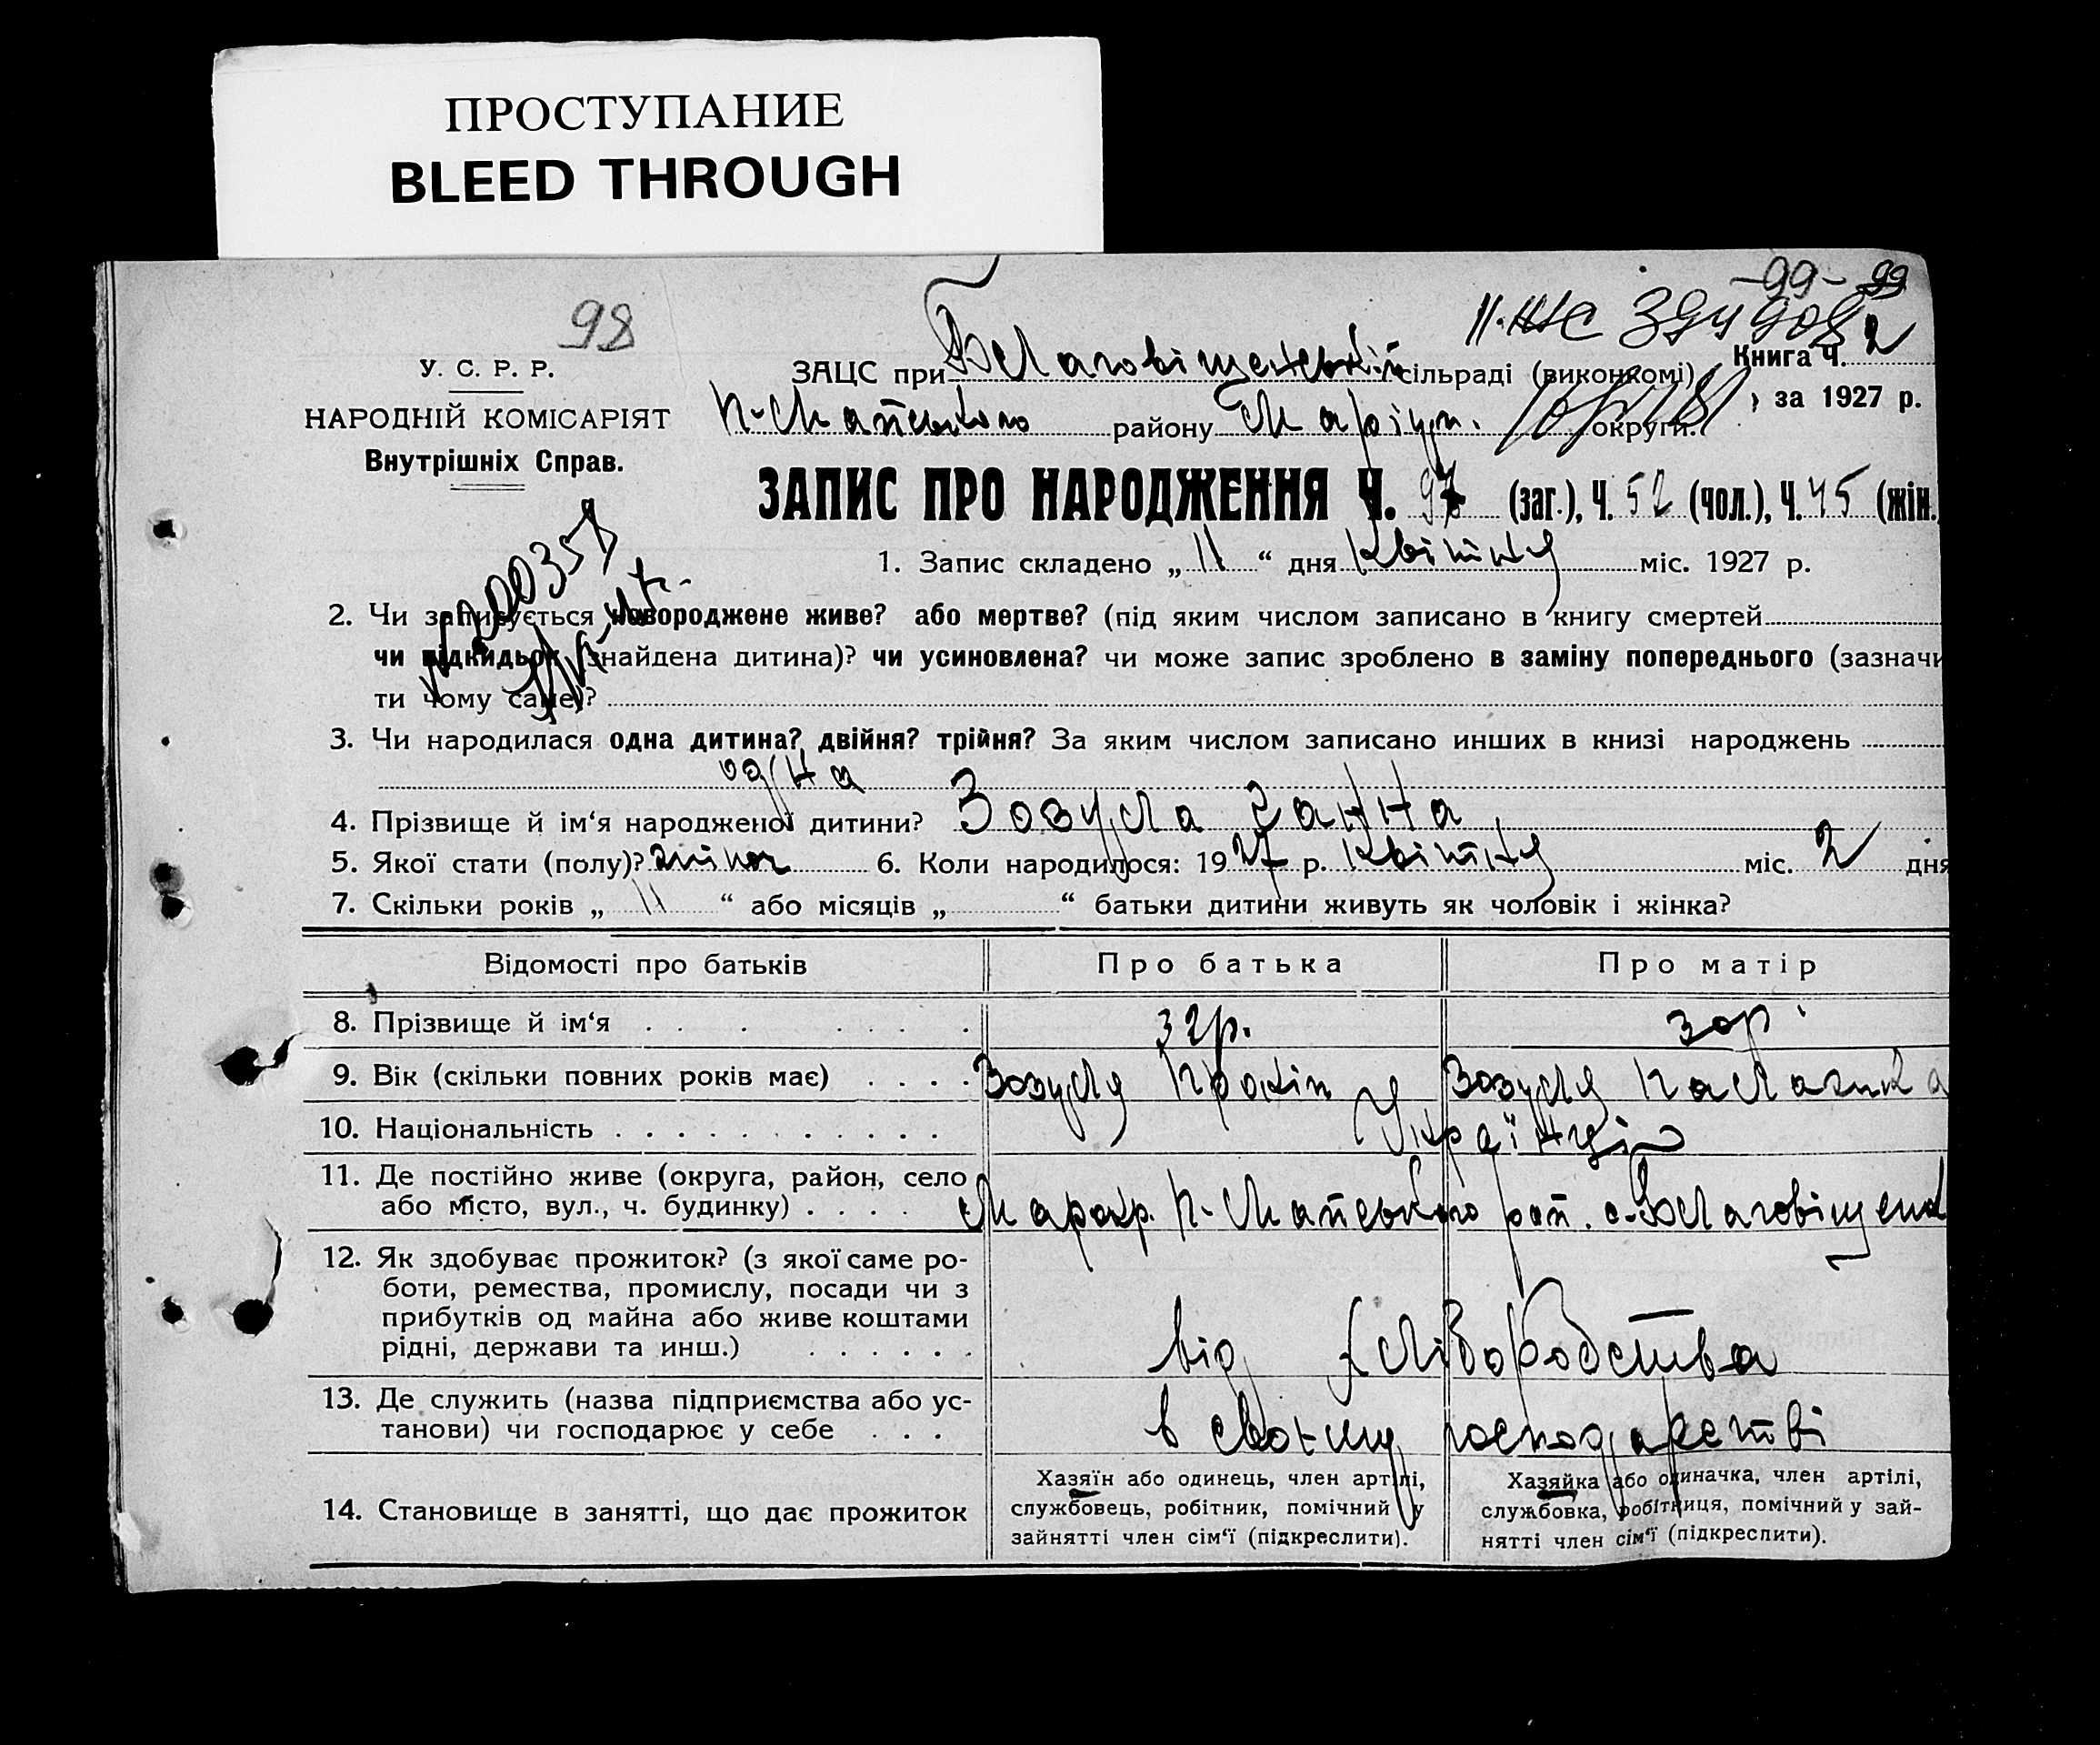 ПРОСТУПАНИЕ
BLEED THROUGH
-99- 99
98
У. С. Р. Р.
НАРОДНІЙ КОМІСАРІЯТ
Внутрішніх Справ.
Книга Ч. 2
за 1927 р.
ЗАЦС при Благовіщенській сільраді (виконкомі)
району Маріуп. округи.
ЗАПИС ПРО НАРОДЖЕННЯ Ч. 97 (заг.), Ч. 52 (чол.), Ч. 45 (жін.
1. Запис складено „ 11 “ дня Квітня міс. 1927 р.
2. Чи записується новороджене живе? або мертве? (під яким числом записано в книгу смертей
чи підкидьок (знайдена дитина)? чи усиновлена? чи може запис зроблено в заміну попереднього (зазначи
ти чому саме)?
3. Чи народилася одна дитина? двійня? трійня? За яким числом записано инших в книзі народжень
одна
4. Прізвище й ім‘я народженої дитини? Зозуля Ганна
5. Якої стати (полу)? жіноч 6. Коли народилося: 1927 р. Квітня міс. 2 дня
7. Скільки років „ 11 “ або місяців „ “ батьки дитини живуть як чоловік і жінка?
Відомості про батьків Про батька Про матір
8. Прізвище й ім‘я . . . . . . . 32р. 30р
9. Вік (скільки повних років має) . . . . Зозуля Прокіп Зозуля Палажка
10. Національність . . . . . . . . . . . Українці
11. Де постійно живе (округа, район, село
або місто, вул., ч. будинку) . . . . Марокр. рай. с. Благовіщенк
12. Як здобуває прожиток? (з якої саме ро-
боти, ремества, промислу, посади чи з
прибутків од майна або живе коштами
рідні, держави та инш.) . . . . . . від хлібородства
13. Де служить (назва підприємства або ус-
танови) чи господарює у себе . . . в своїму господарстві
14. Становище в занятті, що дає прожиток
Хазяїн або одинець, член артілі,
службовець, робітник, помічний у
зайнятті член сім‘ї (підкреслити).
Хазяйка або одиначка, член артілі,
службовка, робітниця, помічний у зай-
нятті член сім‘ї (підкреслити).